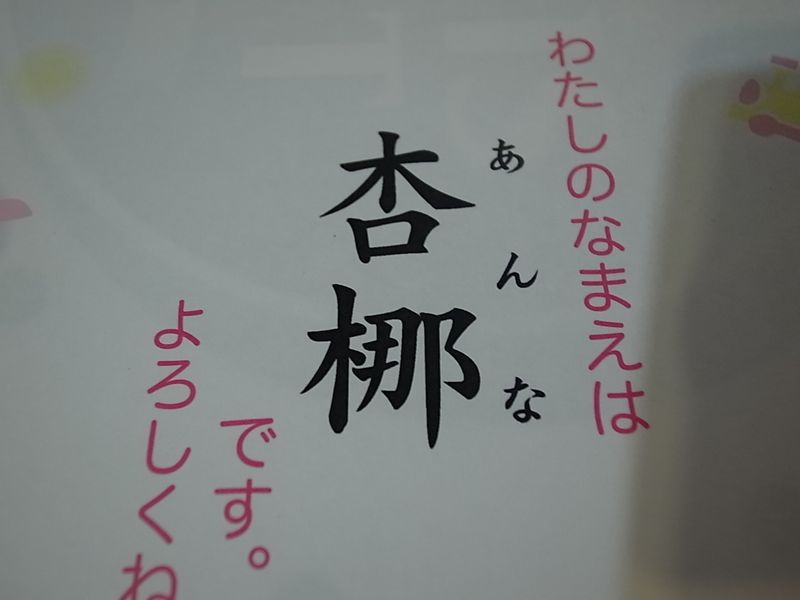 わたしのなまえは
あんな
杏梛
です。
よろしくね